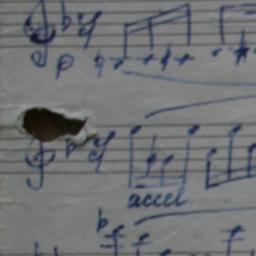 p
accel